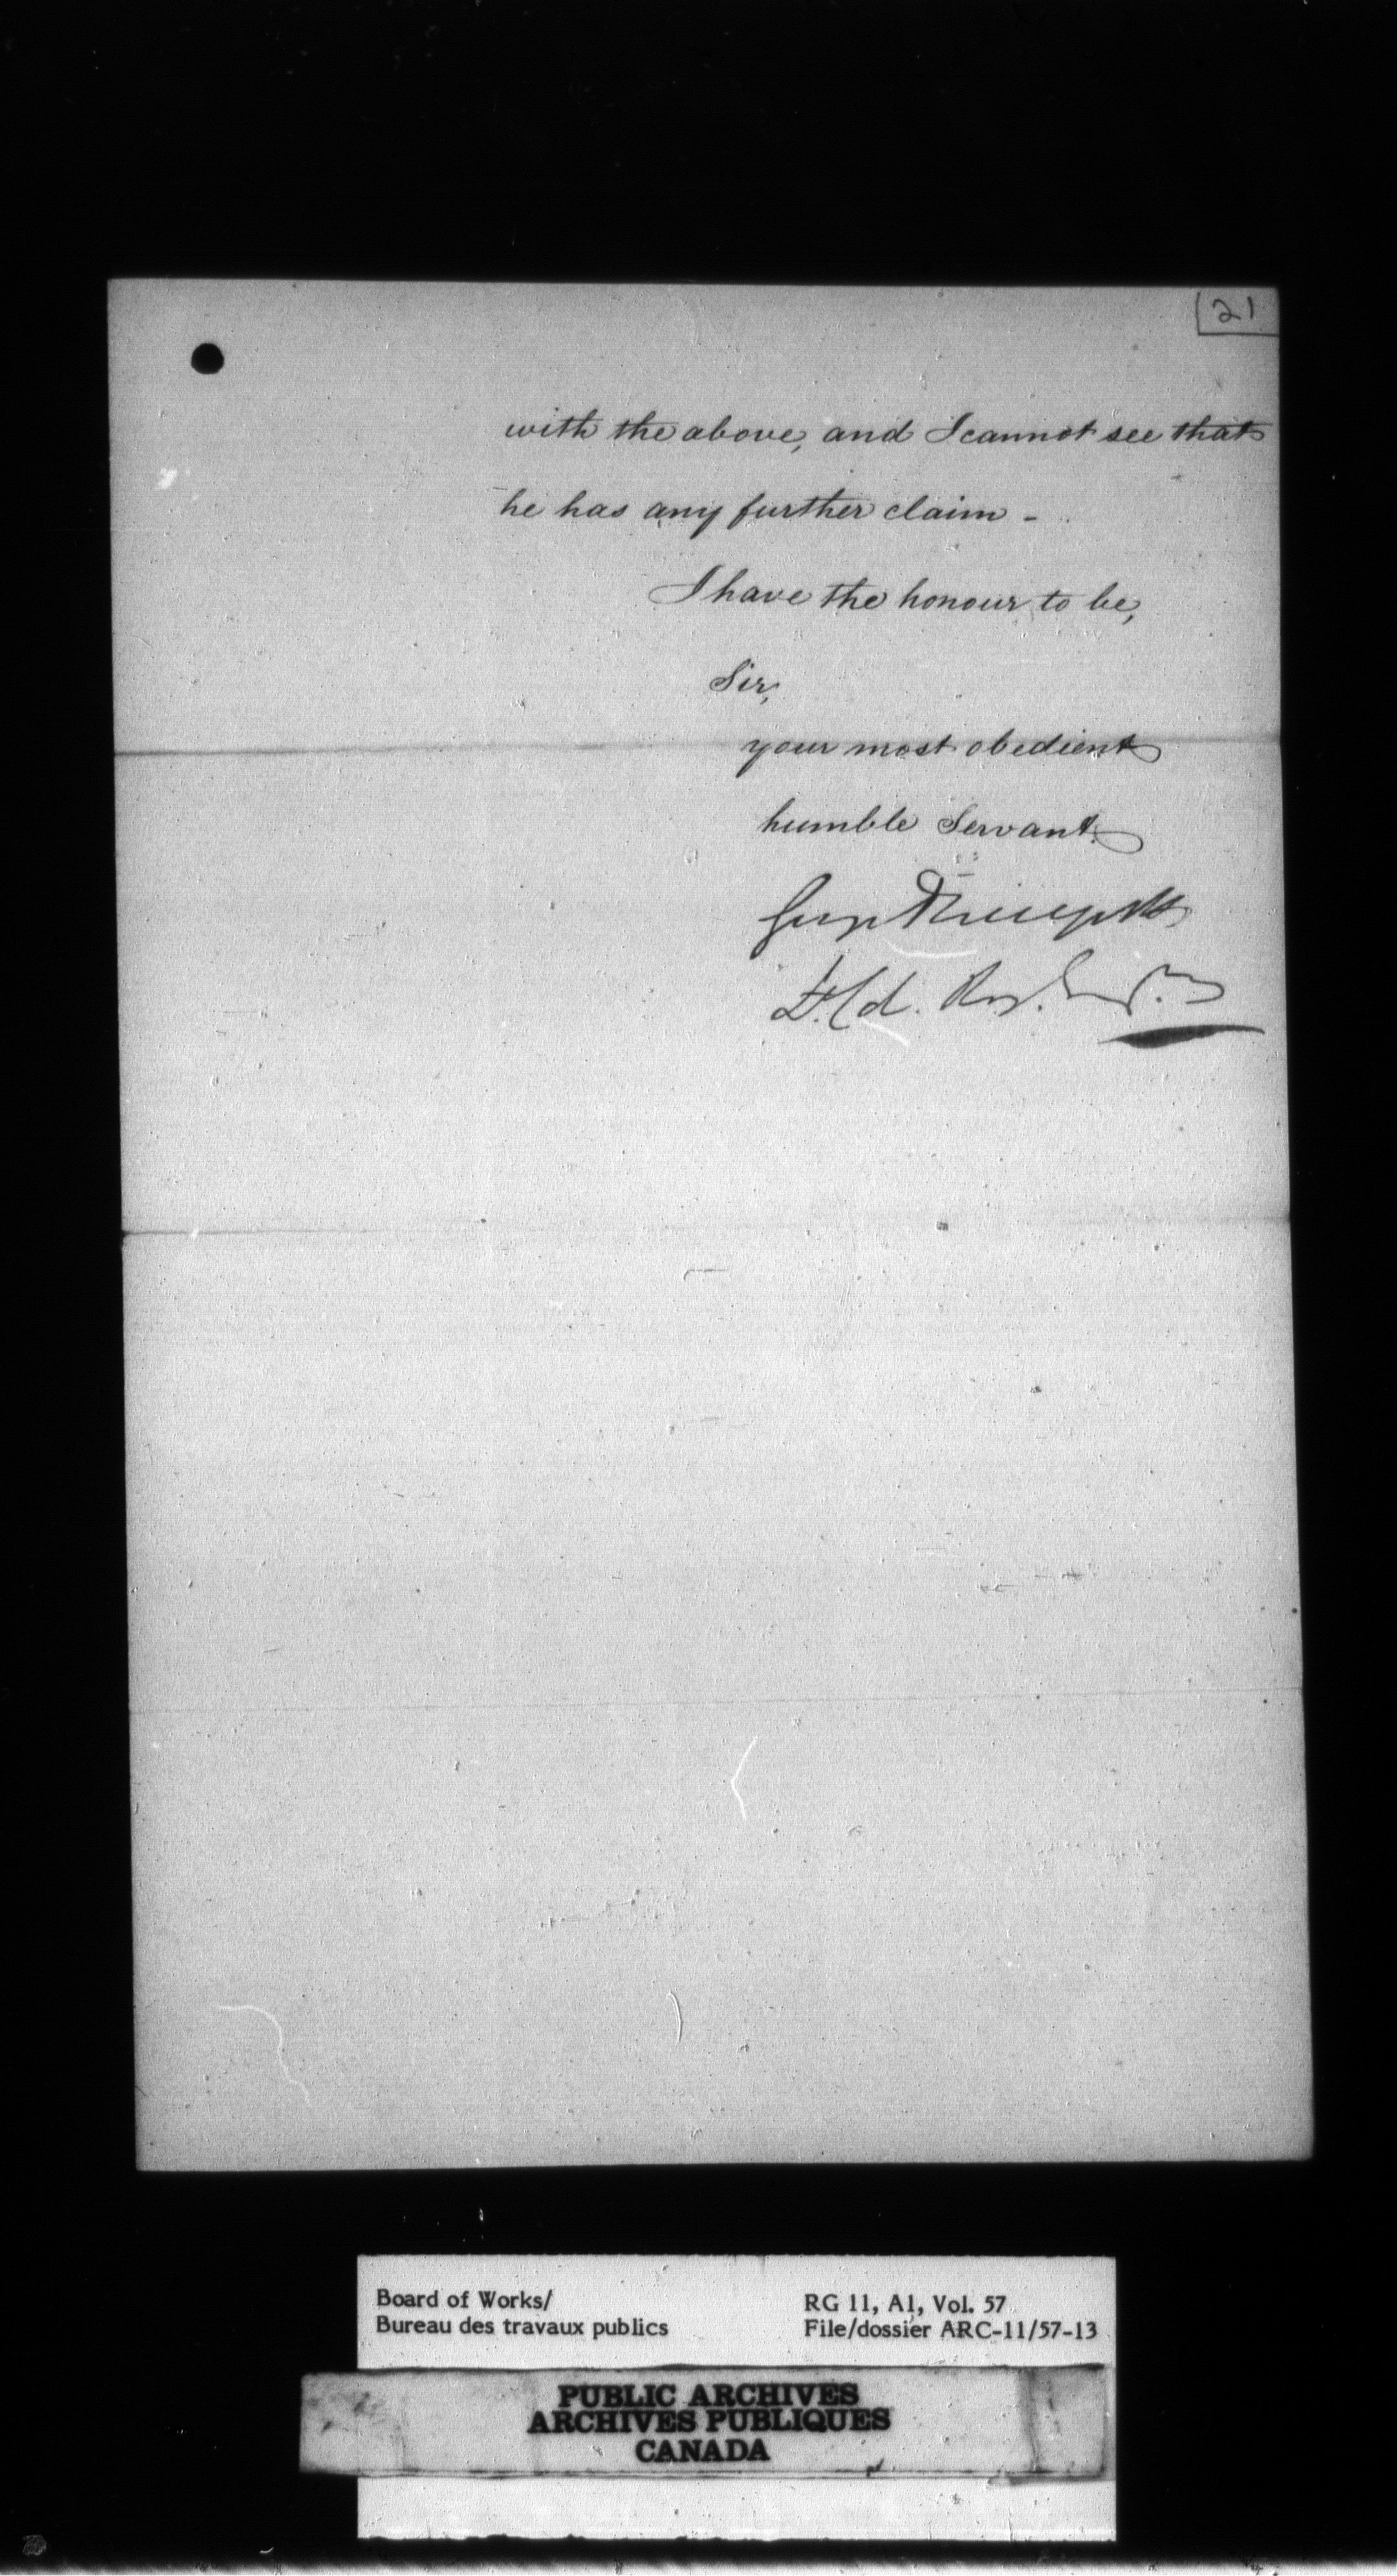 21
with the above, and I cannot see that
he has any further claim -
I have the honour to be,
Sir,
your most obedient
humble Servant.
Geo Phillpotts
Lt. Col. Roy. Eng.
Board of Works/
Bureau des travaux publics
RG 11, A1, Vol. 57
File/dossier ARC-11/57-13
PUBLIC ARCHIVES
ARCHIVES PUBLIQUES
CANADA